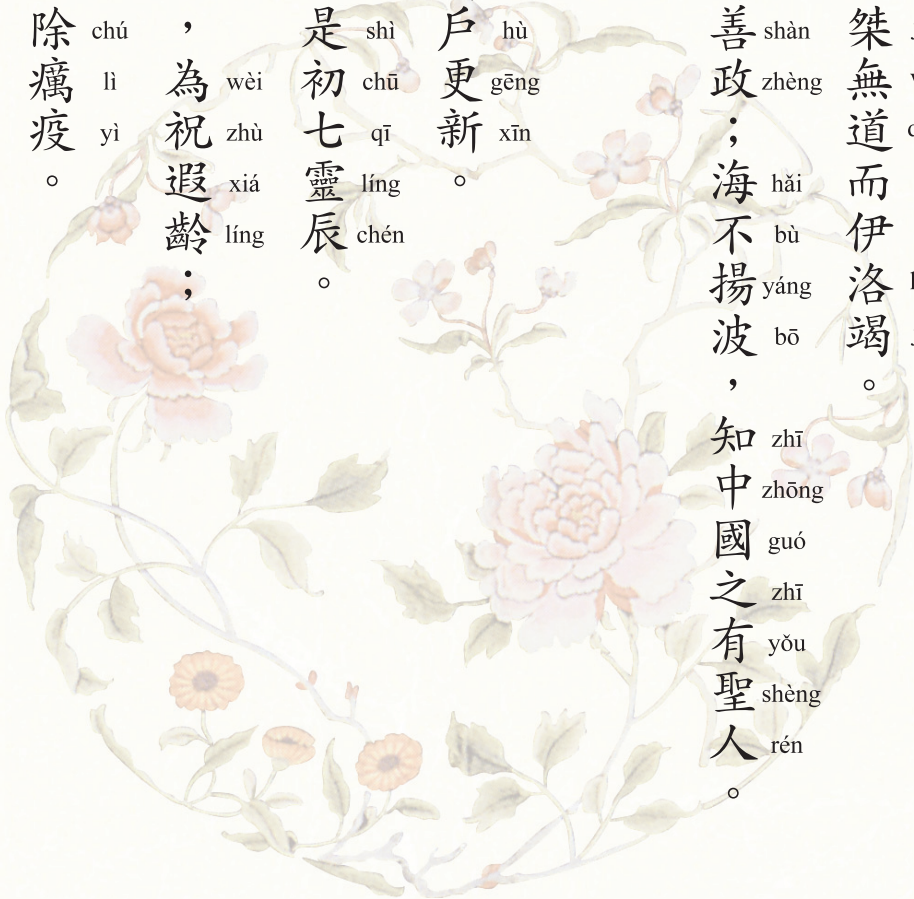 桀無道而伊洛竭。
善政；海不揚波，知中國之有聖人。
shàn zhèng hǎi bù yáng bō zhī zhōng guó zhī yǒu shèng rén
戶更新。
hù gēng xīn
是初七靈辰。
shì chū qī líng chén
，為祝遐齡；
wèi zhù xiá líng
除癘疫。
chú lì yì